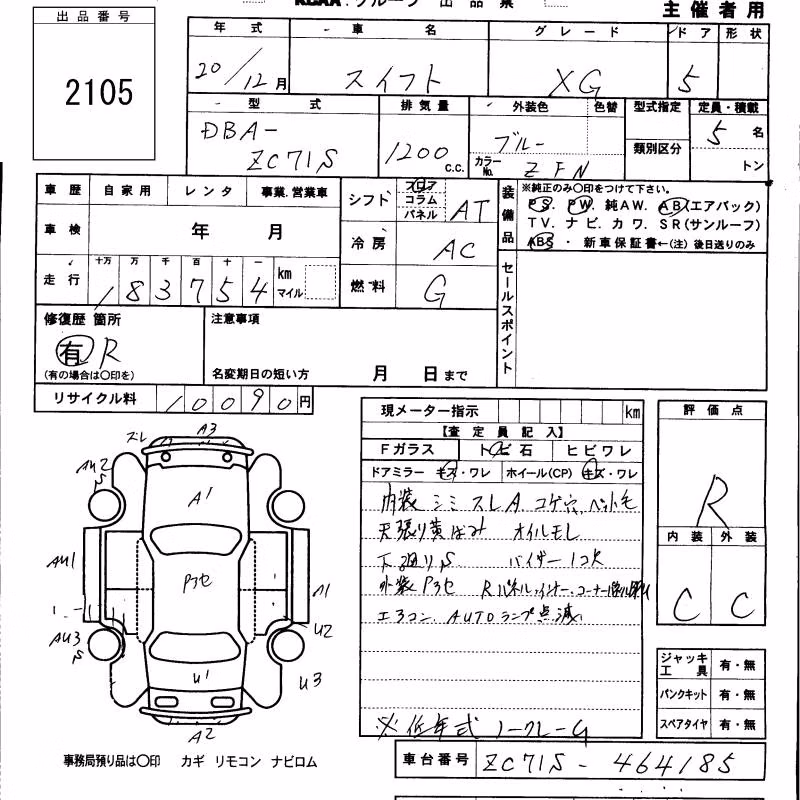 KCAA グループ 出品票
主催者用
出品番号
2105
年式 車名 グレード ドア 形状
20/12月 スイフト XG 5
型式 排気量 外装色 色替 型式指定 定員・積載
DBA-
ZC71S
1200 c.c.
ブルー
カラーNo. ZFN
類別区分
5名
トン
車歴 自家用 レンタ 事業.営業車
車検 年 月
走行 十万 万 千 百 十 一
183754 km マイル
シフト フロア コラム パネル AT
冷房 AC
燃料 G
装備品
※純正のみ〇印をつけて下さい。
PS. PW. 純AW. AB(エアバック)
TV. ナビ. カワ. SR(サンルーフ)
ABS ・ 新車保証書←(注)後日送りのみ
セールスポイント
修復歴 箇所
有 R
(有の場合は〇印を)
注意事項
名変期日の短い方 月 日まで
リサイクル料 10090円
現メーター指示 km
【査定員記入】
Fガラス トビ石 ヒビワレ
ドアミラー キズ・ワレ ホイール(CP) キズ・ワレ
内装 シミ スレ A コゲ穴 ペット毛
天張り黄ばみ オイルモレ
下廻りS バイザー1コ欠
外装 Pスセ Rパネル,インナー.コーナー
エアコン AUTOランプ点滅
※低年式 ノークレーム
評価点
R
内装 外装
C C
ジャッキ 工具 有・無
パンクキット 有・無
スペアタイヤ 有・無
ズレ A3
AU2
S
A1
AU1
A1
U2
AU3
S
U1
U3
A2
事務局預り品は〇印 カギ リモコン ナビロム
車台番号 ZC71S - 464185